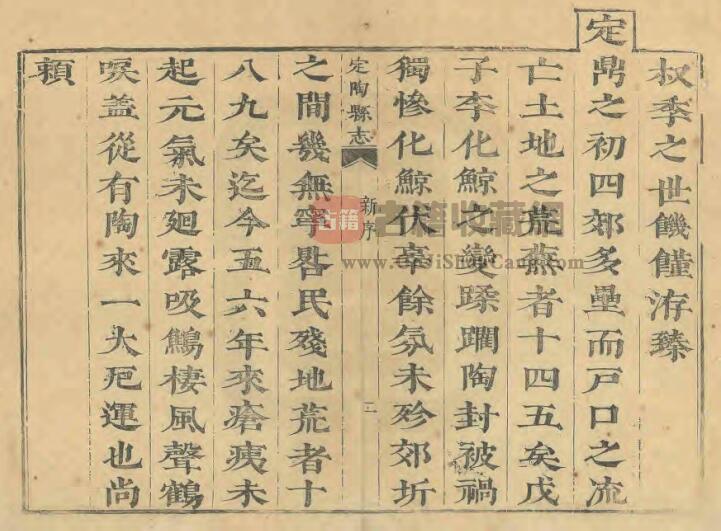 叔季之世饑饉洊臻
定鼎之初四郊多壘而戸口之流
亡土地之荒蕪者十四五矣戊
子李化鯨之變蹂躙陶封被禍
獨慘化鯨伏辜餘氛未殄郊圻
定陶縣志
新序
二
之間幾無寧晷民殘地荒者十
八九矣迄今五六年來瘡痍未
起元氣未廻露吸鷦棲風聲鶴
唳葢從有陶來一大戹運也尚
頼
古籍
古籍收藏網